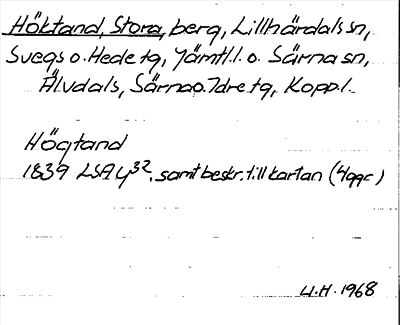 Höktand, Stora, berg, Lillhärdals sn,
Svegs o. Hede tg, Jämtl.l. o. Särna sn,
Älvdals, Särna o. Idre tg, Kopp.l.
Högtand
1839 LSA y32, samt beskr. till kartan (Häggc)
U.H. 1968